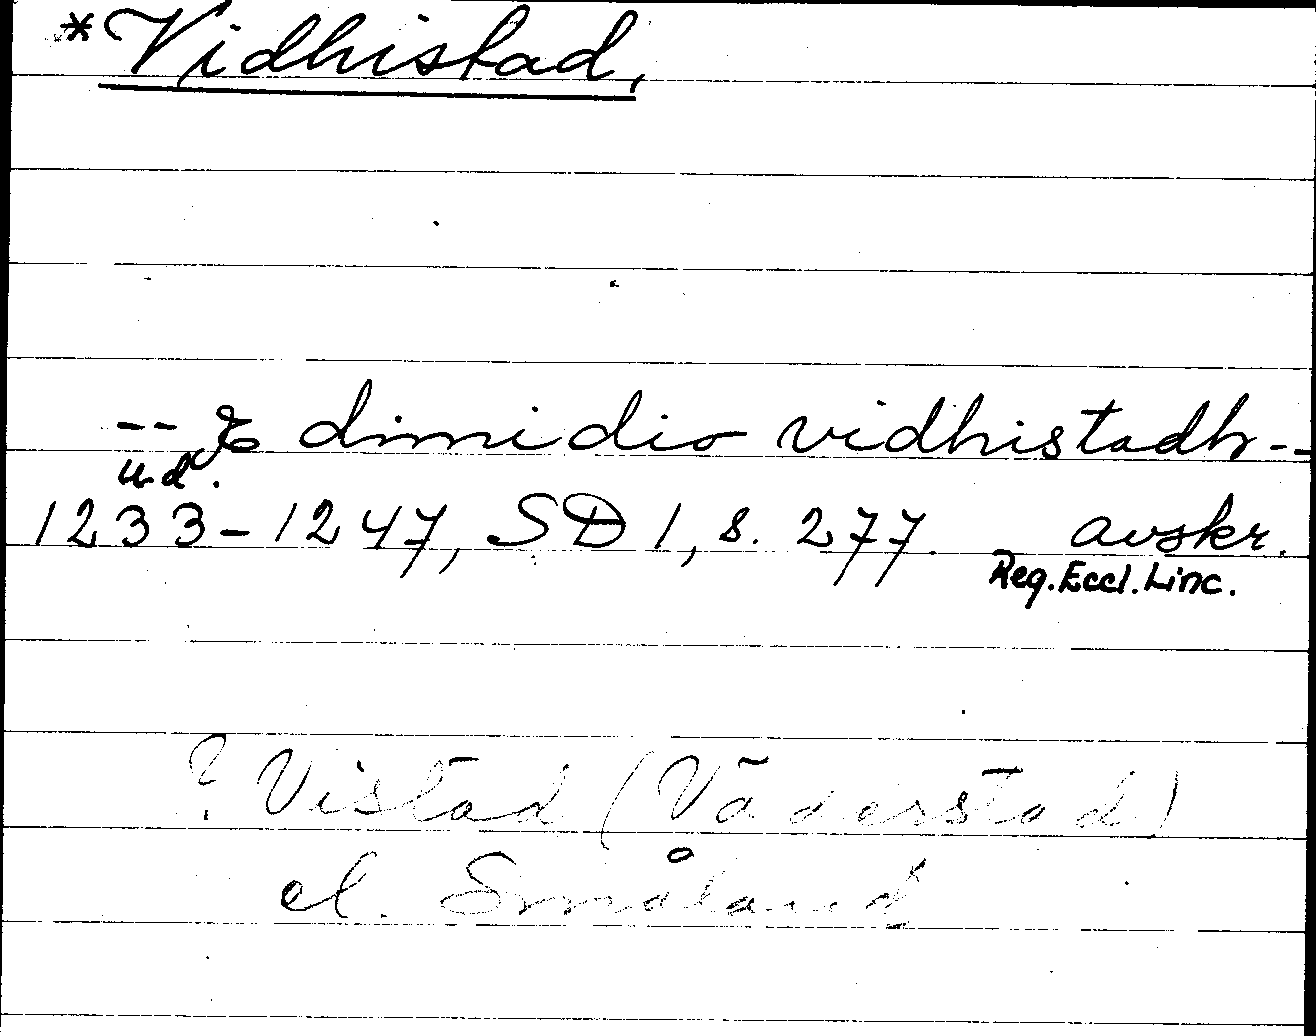 *Vidhistad,
-- & dimidio vidhistadh --
u.d.
1233-1247, SD 1, s. 277. avskr.
Reg. Eccl. Linc.
? Vistad (Väderstad)
el. Småland